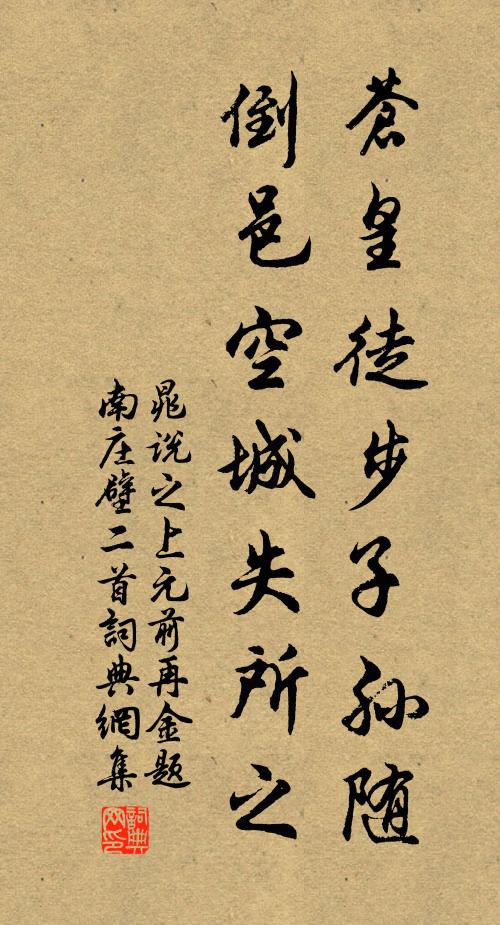 蒼皇徒步子孫随
倒邑空城失所之
晁說之上元前再金題
南庄壁二首詞典網集
詞典网印